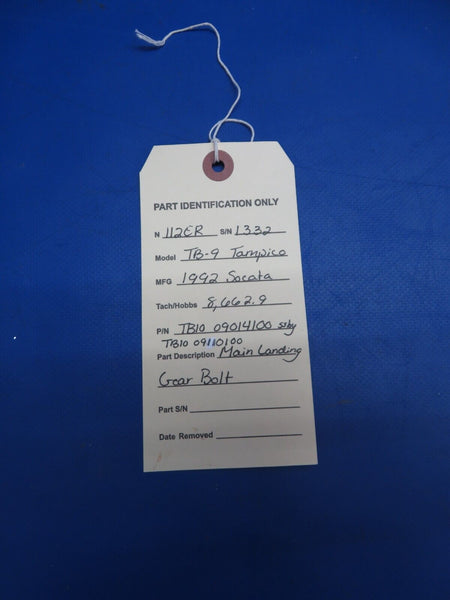 PART IDENTIFICATION ONLY
N 112ER S/N 1332
Model TB-9 Tampico
MFG 1992 Socata
Tach/Hobbs 8,662.9
P/N TB10 09014100 ssby
TB10 09110100
Part Description Main Landing
Gear Bolt
Part S/N
Date Removed